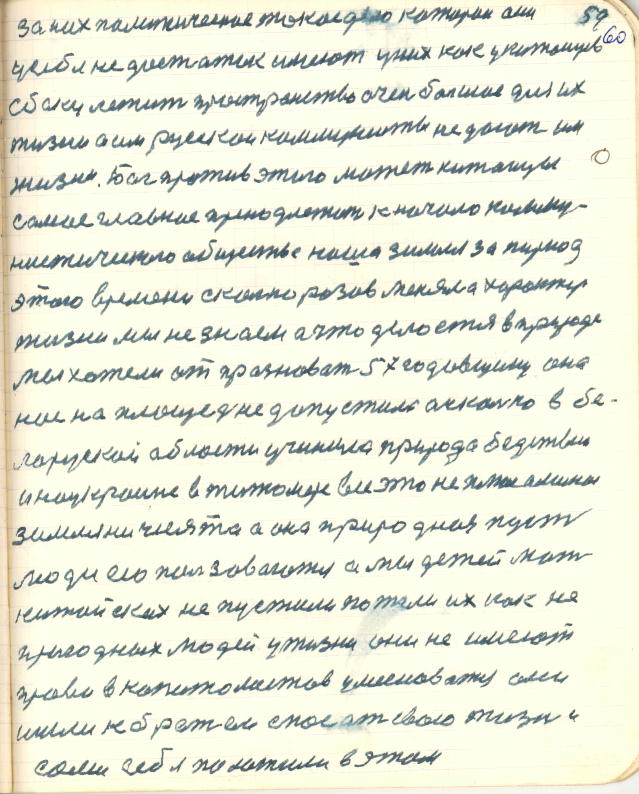 59
60
за них политическое токое дело которои они
у себя не достаток имеют у них как у китайцув
с боку летит пространство очен болшое для их
жизни а им русской коммунисты не дают им
жизни. Бог против этого может китайцы
самое главное принодлежит к начало комму-
нистического общества наша зимля за период
этого времени сколко розов меняла характир
жизни мы не знаем а что делоется в природе
мы хотели от празноват 57 годовщину она
нас на площед не допустила а сколко в бе-
ларуской области учинила природа бедствия
и на украине в житомере все это не
зимля ничия та а она природная пуст
люди ею ползоваются а мы детей мат
китайских не пустили потели их как не
пригодных людей у жизни они не имеют
право в копитолистов умесноватя они
шли к братем спосат свою жизн и
сами себя положили в этом